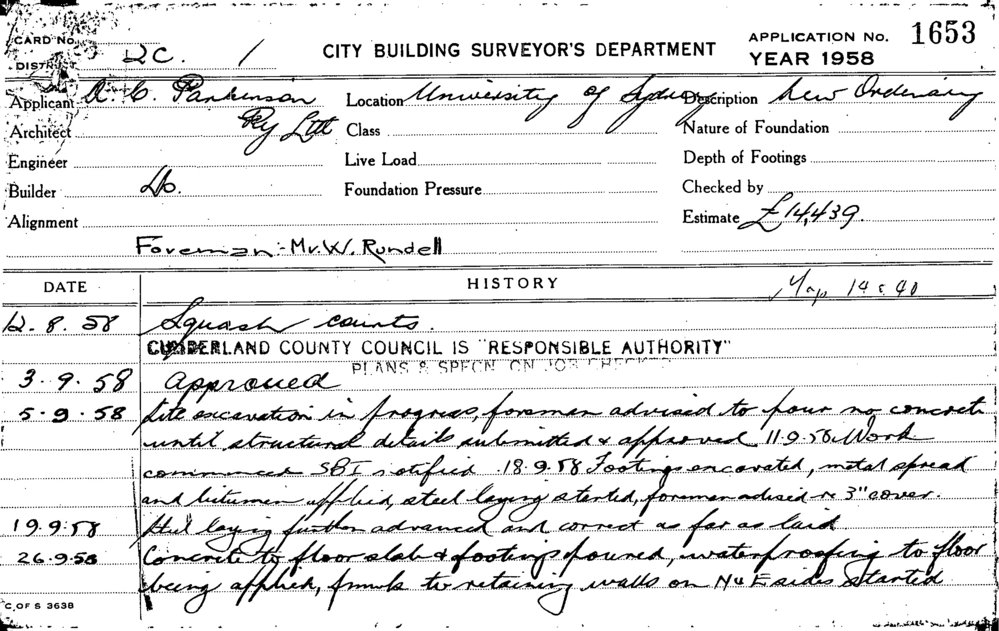 CARD No. APPLICATION No. 1653
DISTRICT 2C. 1 CITY BUILDING SURVEYOR'S DEPARTMENT YEAR 1958
Applicant A. C. Parkinson Location University of Sydney Description New Ordinary
Architect Pty Ltd Class Nature of Foundation
Engineer Live Load Depth of Footings
Builder Do. Foundation Pressure Checked by
Alignment Estimate £14,439.
Foreman:- Mr. W. Rundell
DATE HISTORY Map 14 & 40
12.8.58 Squash courts.
CUMBERLAND COUNTY COUNCIL IS "RESPONSIBLE AUTHORITY"
PLANS & SPECN ON JOB CHECKED
3.9.58 Approved
5.9.58 Site excavation in progress, foreman advised to pour no concrete
until structural details submitted & approved 11.9.58 Work
commenced SBI notified. 18.9.58 Footings excavated, metal spread
and bitumen applied, steel laying started, foreman advised re 3" cover.
19.9.58 Steel laying further advanced and correct as far as laid
26.9.58 Concrete to floor slab & footings poured, waterproofing to floor
being applied, fmwk to retaining walls on N & E sides started
C OF S 3638